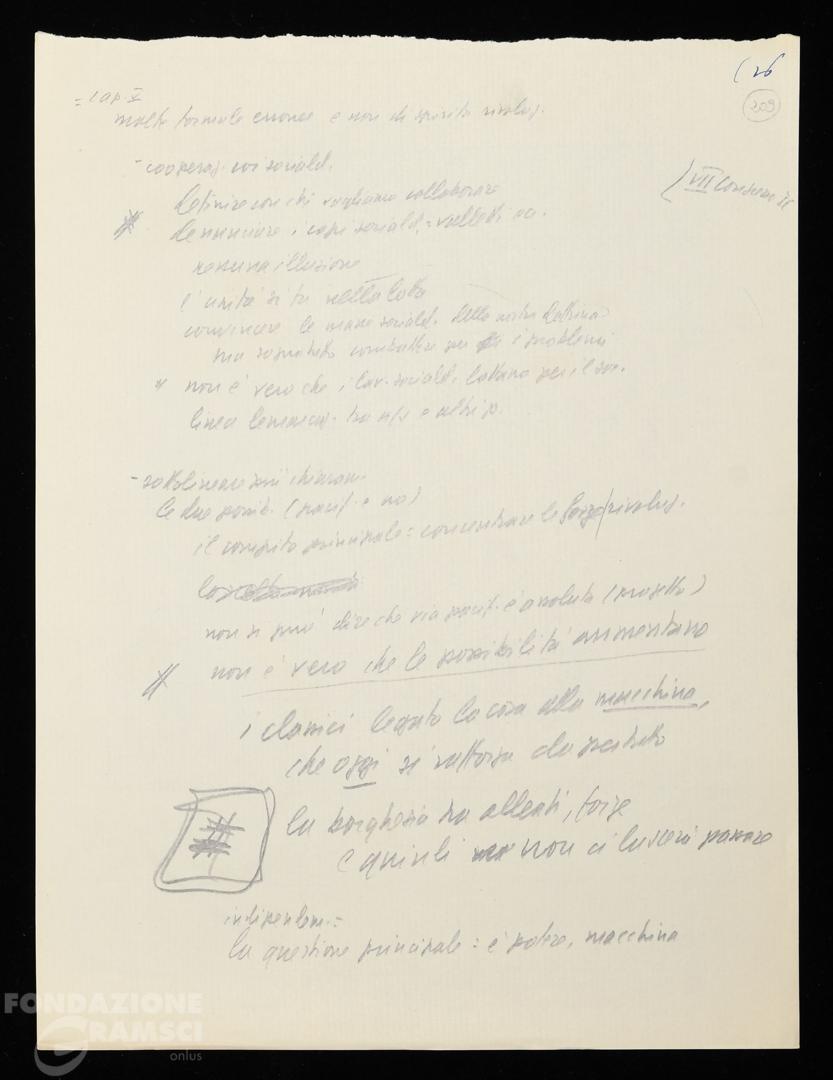 (26
209
= cap. V
molte formule erronee e non di spirito rivoluz.
- cooperaz. coi sociald.
(VII Congresso IC
definire con chi vogliamo collaborare
denunciare i capi sociald. =
nessuna illusione
l'unità si fa nella lotta
convincere le masse sociald. della nostra dottrina
ma soprattutto combattere per i problemi
* non è vero che i lav. sociald. lottano per il soc.
linea demarcaz. tra e altri p.
- sottolineare più chiaram.
le due possib. (pacif. e no)
il compito principale = concentrare le forze rivoluz.
non si può dire che via pacif. è assoluta (progetto)
non è vero che le possibilità aumentano
i classici legato la cosa alla macchina,
che oggi si rafforza dappertutto
la borghesia ha alleati, forze
e quindi non ci lascerà passare
indipendem. =
la questione principale = è potere, macchina
FONDAZIONE
GRAMSCI
onlus